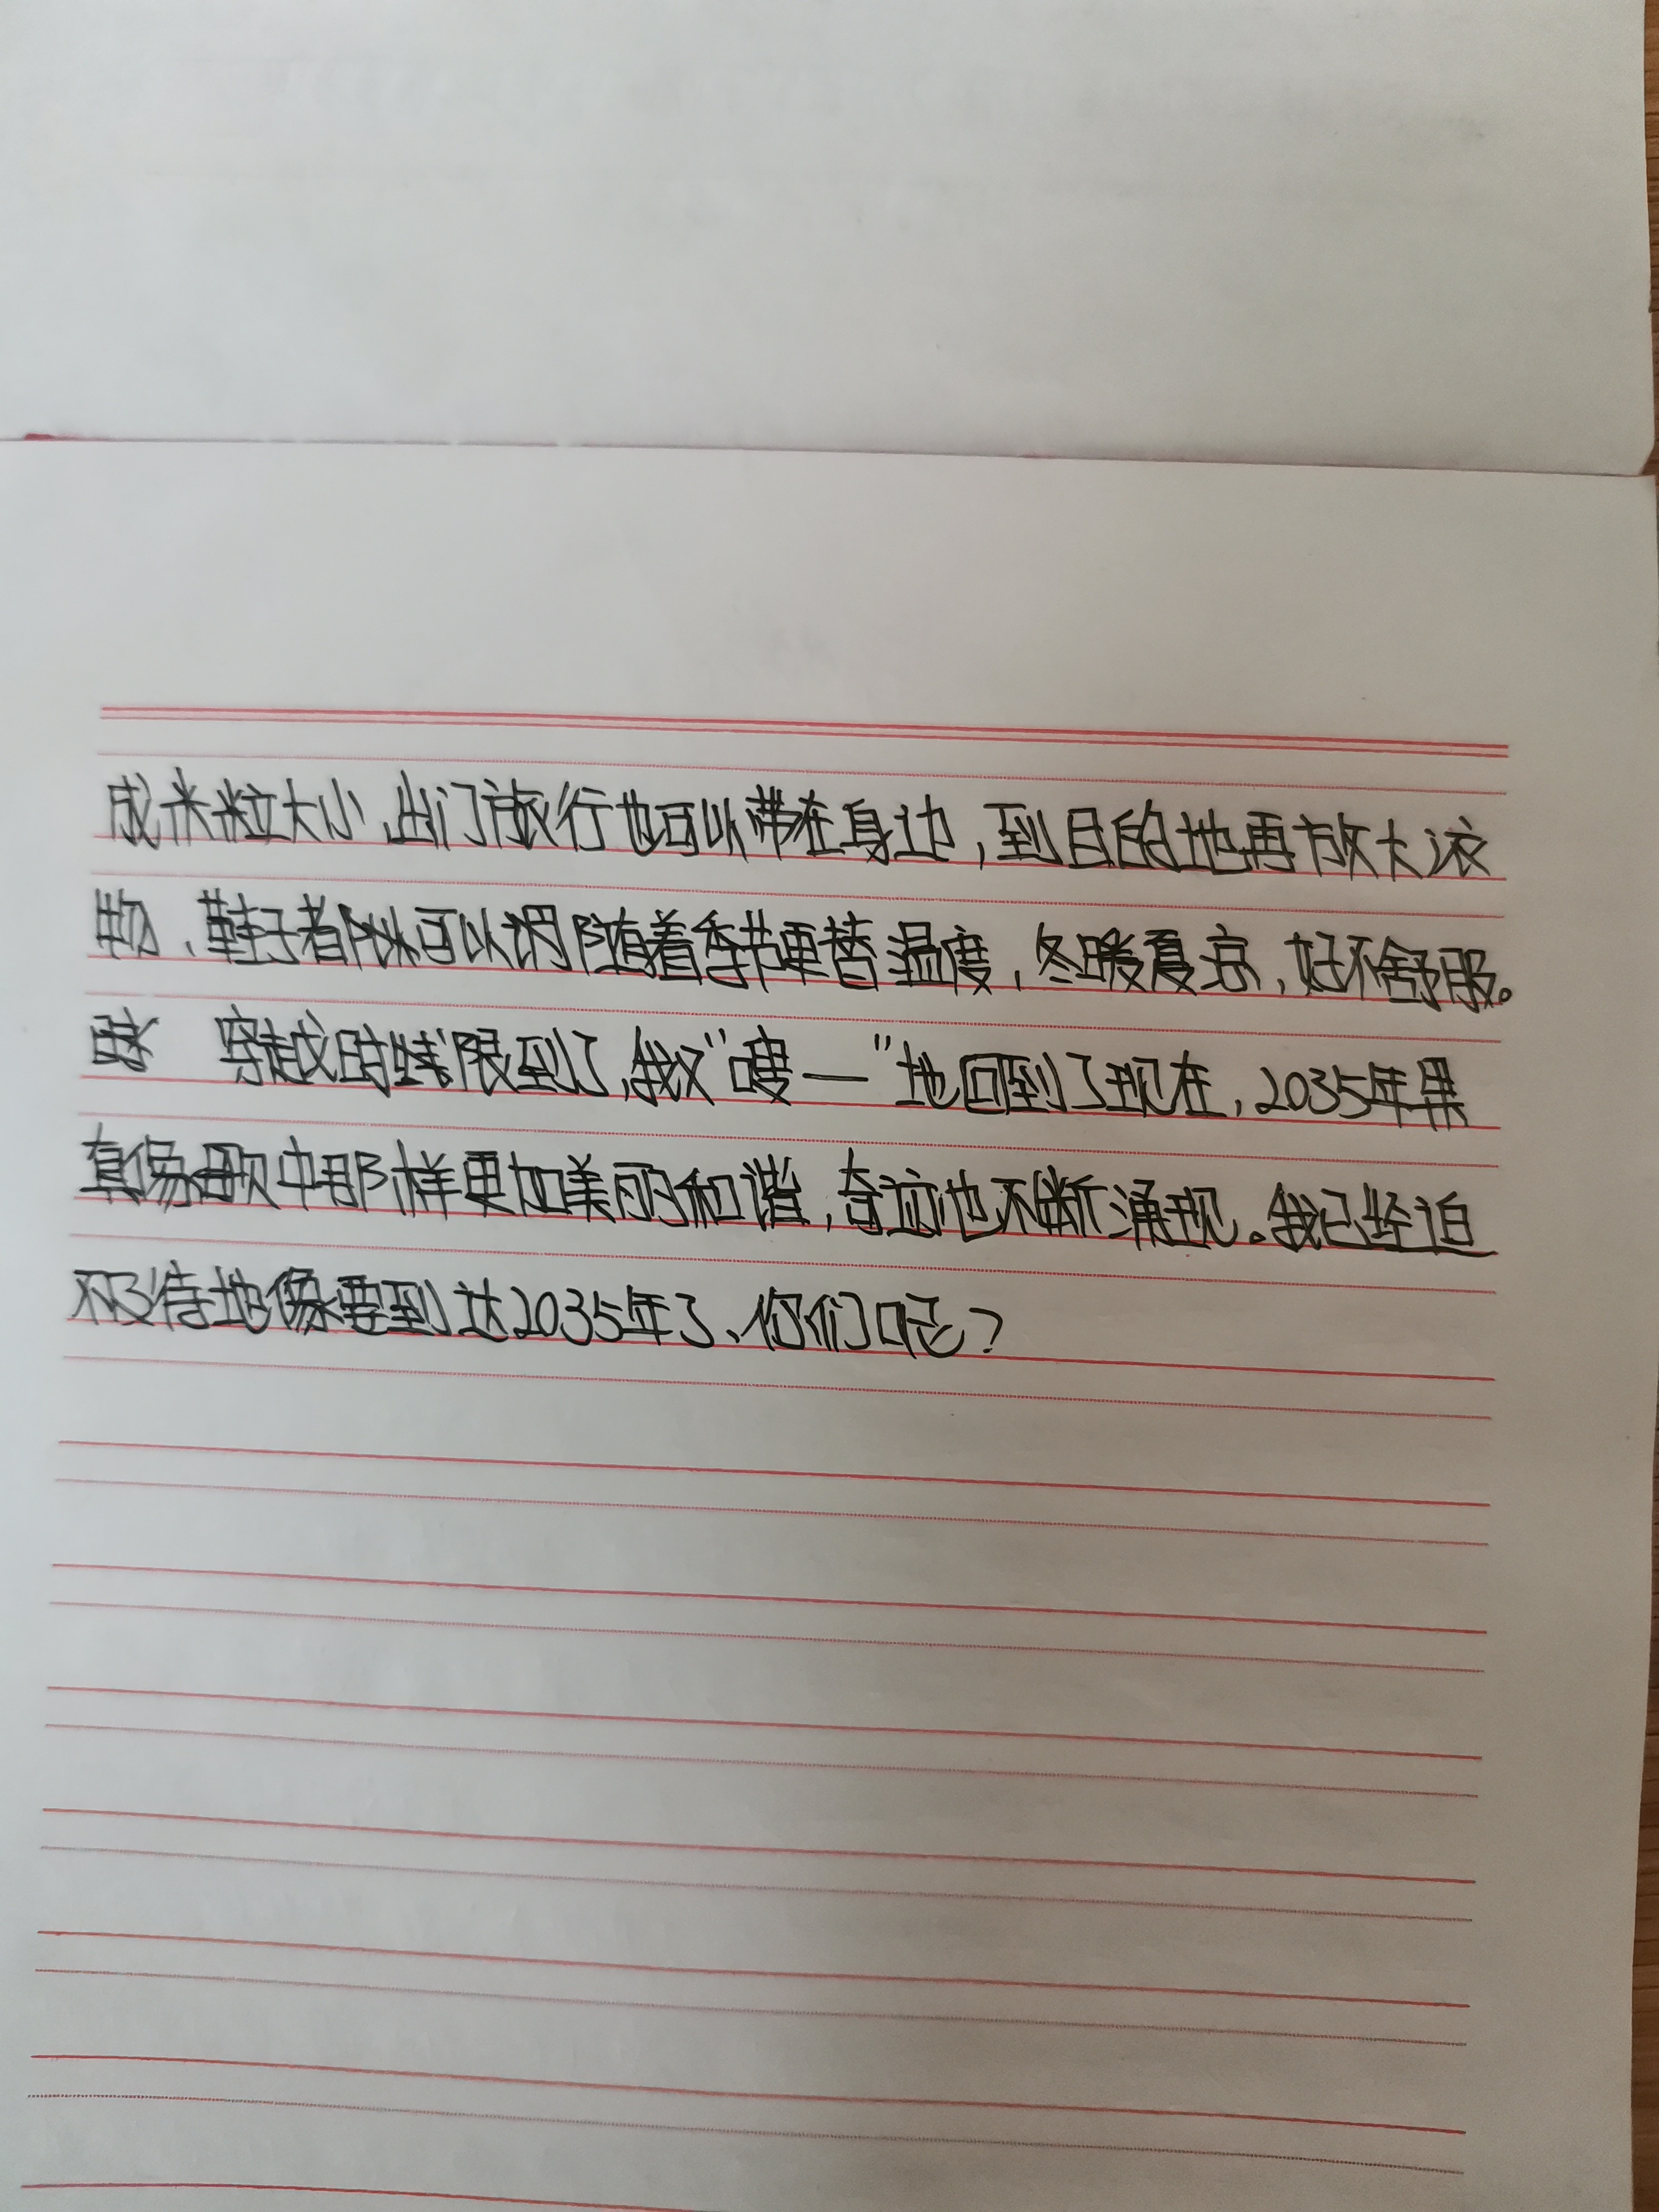 成米粒大小,出门旅行也可以带在身边,到目的地再放大。衣
物、鞋子都可以随着季节更替温度,冬暖夏凉,好不舒服。
穿越时限到了,我又“嗖——”地回到了现在,2035年果
真像歌中那样更加美丽和谐,奇迹也不断涌现。我已经迫
不及待地要到达2035年了、你们呢?